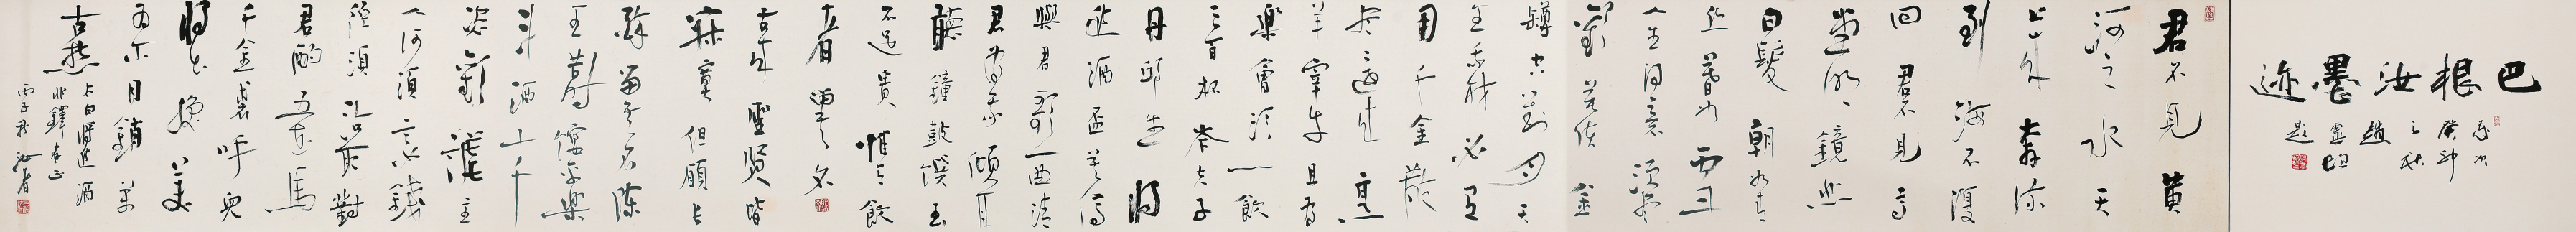 巴根汝墨迹
君不見黃
河之水天
上來奔流
到海不復
回君不見高
堂明鏡悲
白髮朝如青
絲暮成雪
人生得意須盡
歡莫使金
罇空對月天
生我材必有
用千金散
盡還復來烹
羊宰牛且為
樂會須一飲
三百杯岑夫子
丹邱生將
進酒杯莫停
與君歌一曲請
君為我傾耳
聽鐘鼓饌玉
不足貴惟有飲
者留其名
古來聖賢皆
寂寞但願長
醉留其名陳
王昔時宴平樂
斗酒十千
恣歡謔主
人何須言少錢
徑須沽取對
君酌五花馬
千金裘呼兒
將出換美
酒與尔同銷萬
古愁
李白將進酒
丙子秋